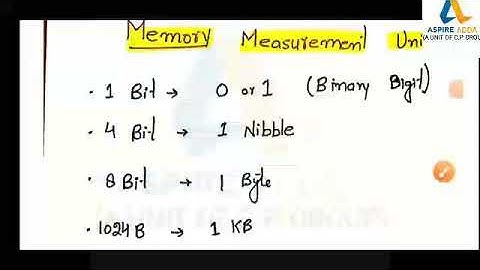 Memory Measurement Uni
ASPIRE ADDA
(A UNIT OF C.P GROUP)
• 1 Bit → 0 or 1 (Binary Digit)
• 4 Bit → 1 Nibble
• 8 Bit → 1 Byte
• 1024 B → 1 KB